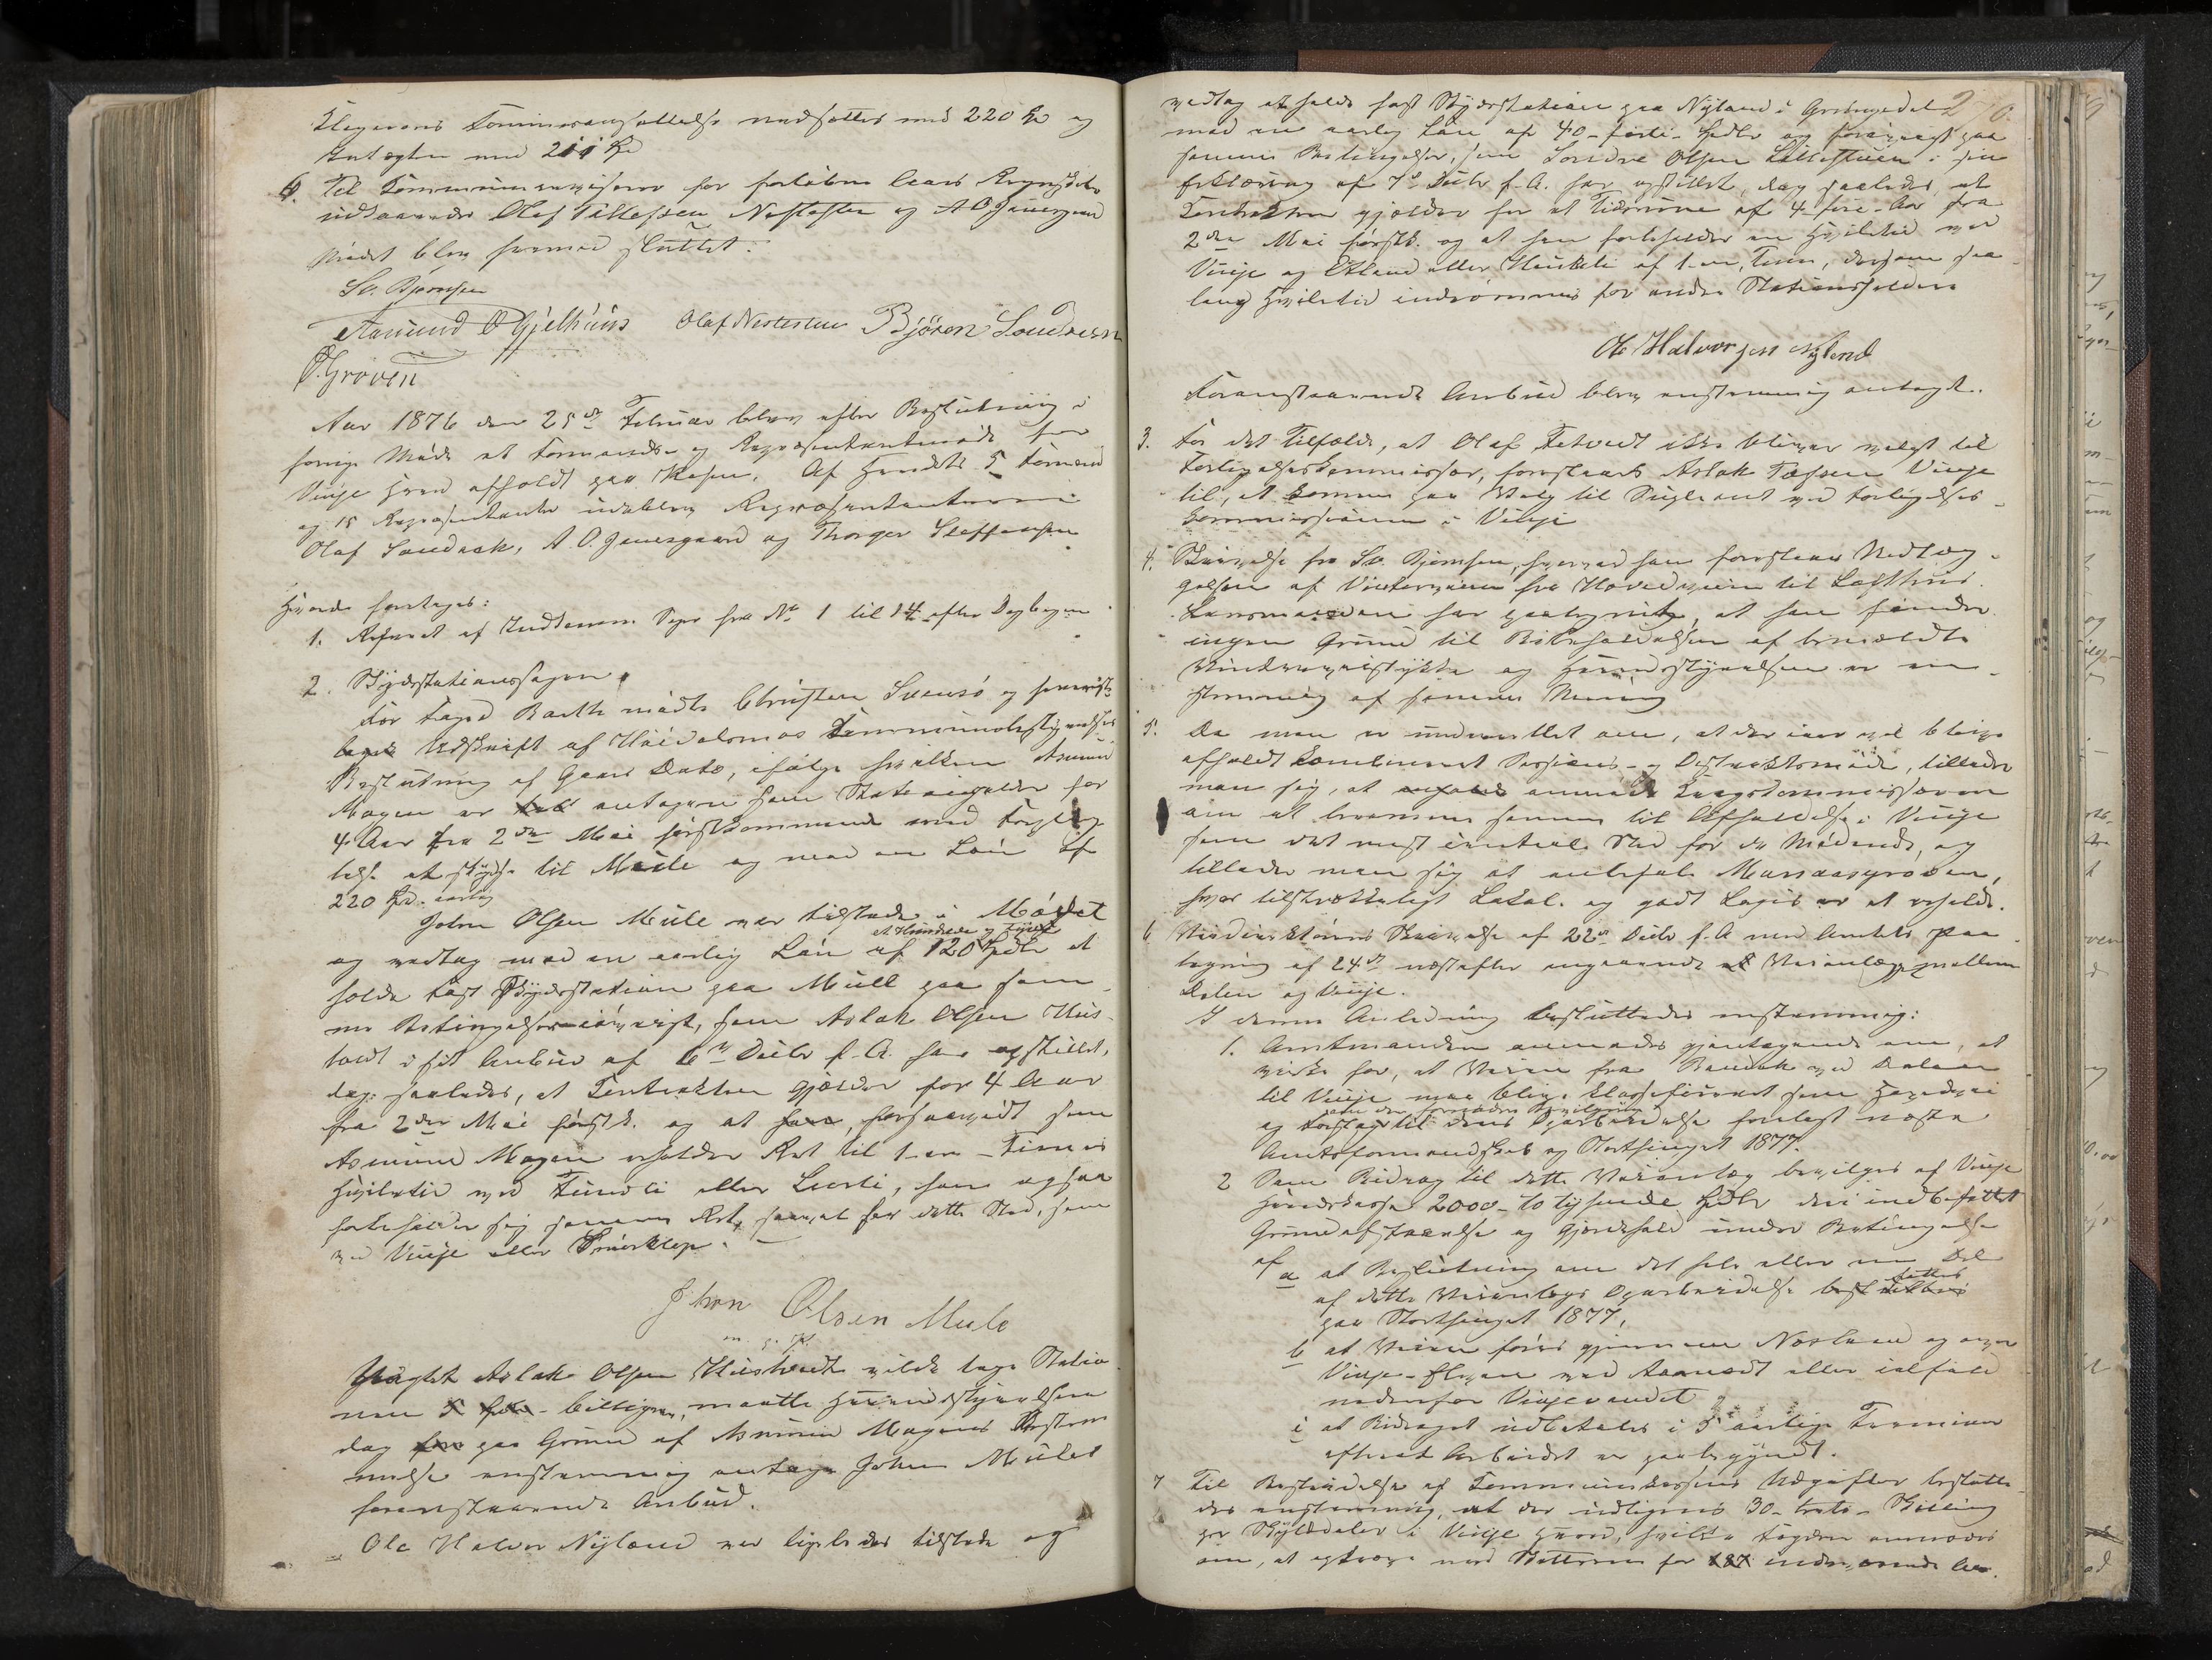 Klageren Kommuneansættelse nedsættes med 220 Kr og
Indtægten med 211 Kr
6. Til Kommunerevisorer for forløbne Aars Regnskaber
udsaaes Olaf Nestestu og A O Jamsgaard
Mødet blev hermed sluttet.
Sv. Bjørnsen
Aamund O Gjelhuus Olaf Nestestu Bjøren Sondresen
O. Groven
Aar 1876 den 25de Februar blev efter Beslutning i
forrige Møde et Formands- og Repræsentantmøde for
Vinje Herred afholdt paa . Af Herredets 5 Formænd
og 15 Repræsentanter udeblev Repræsentanterne
Olaf Sandak, A. O. Jamsgaard og Thorger Steffensen
Hvorda foretoges:
1. Referat af Indkomne Sager fra No 1 til 14 efter Dagbogen
2. Skydsstationssagen
For Foged Barth mødte Christen og fremlagde
Udskrift af Høidalsmos Kommunebestyrelses
Beslutning af Gaars Dato, ifølge hvilken Asmund
Mogen er antagen som Stationsholder for
4 Aar fra 2den Mai førstkommende med Forpligt
telse at skydse til Mule og med en Løn af
220 Kr. aarlig
John Olsen Mule var tilstede i Mødet
et Hundrede og tyve
og vedtog mod en aarlig Løn af 120 Spdlr at
holde fast Skydsstation paa Mule paa sam-
me Betingelser iøvrigt, som Aslak Olsen Hus-
tvedt i sit Anbud af 6te Decbr f. A. har opstillet,
dog saaledes, at Contrakten gjælder for 4 Aar
fra 2den Mai førstk. og at han, forsaavidt som
Asmund Mogen erholder Ret til 1 en Times
Hviletid ved eller , som ogsaa
forbeholder sig samme Ret, saavel for dette Sted, som
ved Vinje eller Smørklep.
John Olsen Mule
m. p. P.
Uagtet Aslak Olsen Hustvedt vilde tage Statio
nen 5 Spd. billigere, maatte Herredsstyrelsen
dog paa Grund af Asmund Mogens Bestem
melse enstemmig antage John Mules
foranstaaende Anbud.
Ole Halvor Nyland var ligeledes tilstede og
270.
vedtog at holde fast Skydsstation paa Nyland i Grungedal
mod en aarlig Løn af 40 - førti - Spdlr og forøvrigt paa
samme Betingelser, som Sondre Olsen i sin
Erklæring af 7de Decbr f. A. har opstillet, dog saaledes, at
Contrakten gjælder for et Tidsrum af 4 - fire - Aar fra
2den Mai førstk. og at han forbeholder en Hviletid ved
Vinje og eller Haukeli af 1 - en, Time, dersom saa
lang Hviletid indrømmes for andre Stationsholdere
Ole Halvorsen Nyland
Foranstaaende Anbud blev enstemmig antagt.
3. For det Tilfælde, at Olaf Tetvedt ikke bliver valgt til
Forligelseskommissær, foreslaaes Aslak Vinje
til, at komme paa Valg til Suppleant ved Forligelses-
kommissionen i Vinje
4. Skrivelse fra Sv. Bjørnsen, hvorved han foreslaar Nedlæg-
gelsen af Vinterveien fra Hovedveien til Lofthus.
Lensmanden har paategnet, at han finder
ingen Grund til Bibeholdelsen af bemeldte
Vinterveistykke og Herredsstyrelsen er en
stemmig af samme Mening
5. Da man er underrettet om, at der iaar vil blive
afholdt kombineret Sessions- og Distriktsmøde, tillader
man sig, at anmode Krigskommissæren
om at berammes samme til Afholdelse i Vinje
som det mest centrale Sted for de Mødende, og
tillader man sig at anbefale Mandasgroven,
hvor tilstrækkeligt Lokale og godt Logis er at erholde.
6. Veidirektørens Skrivelse af 22de Decbr f. A med Amtets Paa-
tegning af 24de næstefter angaaende Veianlæg mellem
Dalen og Vinje.
I denne Anledning besluttedes enstemmig:
1. Amtmanden anmodes gjentagende om, at
virke for, at Veien fra Bandak ved Dalen
til Vinje maa blive klassificeret som Hovedvei
om der fornødne Bevilgning
og Forslag til dens Oparbeidelse forelagt næste
Amtsformandskab og Storthinget 1877.
2 Som Bidrag til dette Veianlæg bevilges af Vinje
Herredskasse 2000 - to tusende Spdlr deri indbefattet
Grundafstaaelse og Gjerdehold under Betingelse
af
a at Beslutning om det hele eller en Del
af dette Veianlægs Oparbeidelse besluttes
paa Storthinget 1877,
b at Veien føres gjennem Nesland og over
Vinje-Elven ved Aamodt eller ialfald
nedenfor Vinjevandet
c at Bidraget udbetales i 5 aarlige Terminer
efterat Arbeidet er paabegyndt.
7 Til Bestridelse af Kommunekassens Udgifter beslutte
des enstemmig, at der udlignes 30 - treti - Skilling
per Skylddaler i Vinje Herred, hvilke Fogden anmodes
om, at opkræve med Skatterne for indeværende Aar.